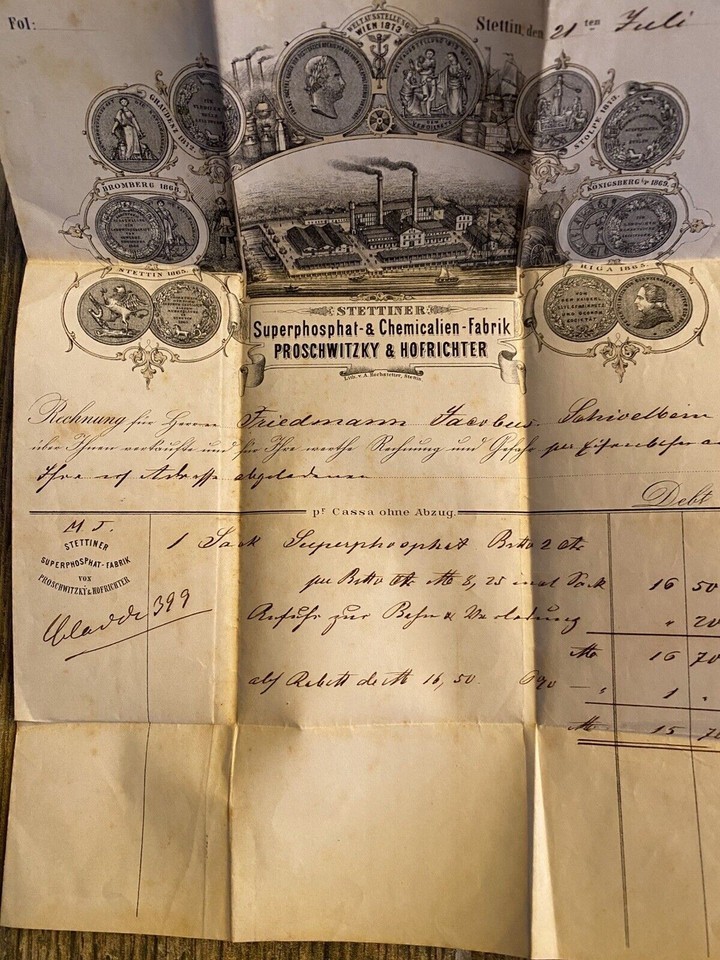 Fol:
Stettin, den 21ten Juli
WELTAUSSTELLUNG
WIEN 1873
GRAUDENZ 1872.
STOLPE 1870.
BROMBERG 1868.
KÖNIGSBERG i/P 1869.
STETTIN 1865.
RIGA 1865.
VON DEM KAISERL.
LIVL. GEMEINNÜTZ.
UND OEKONOM.
SOCIETÄT
STETTINER
Superphosphat-& Chemicalien-Fabrik
PROSCHWITZKY & HOFRICHTER
Lith. v. A. Hochstetter, Stettin.
Rechnung für Herrn Friedmann Jacobus. Schivelbein
über Ihnen verkaufte und für Ihre werthe Rechnung und Gefahr per Eisenbahn an
Ihre Adresse abgeladenen
Debt
pr. Cassa ohne Abzug.
M J.
STETTINER
SUPERPHOSPHAT-FABRIK
VON
PROSCHWITZKY & HOFRICHTER
Cladde 399
1 Sack Superphosphat Btto 2 Ctr
per Btto Ctr M 8,25 Sack 16 50
Anfuhr zur Bahn & Verladung " 20
M 16 70
ab Rabatt de M 16,50. 6% — " 1 "
M 15 70